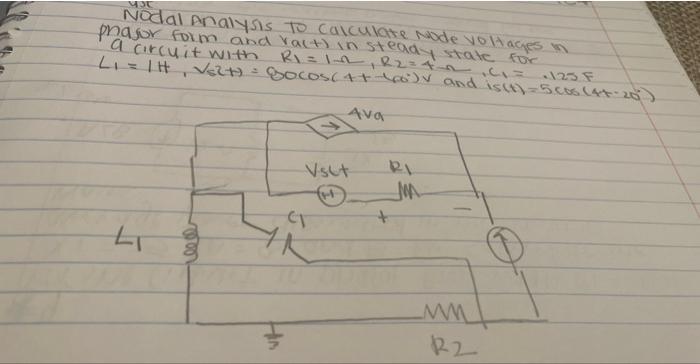 use
Nodal Analysis To Calculate Node voltages in
phasor form and va(t) in steady state for
a circuit with R1 = 1Ω, R2 = 4Ω, C1 = .125F
L1 = 1H, Vs(t) = 80cos(4t-40°)V and is(t) = 5cos(4t-20°)
4Va
Vs(t R1
+ -
C1
+ -
L1
R2